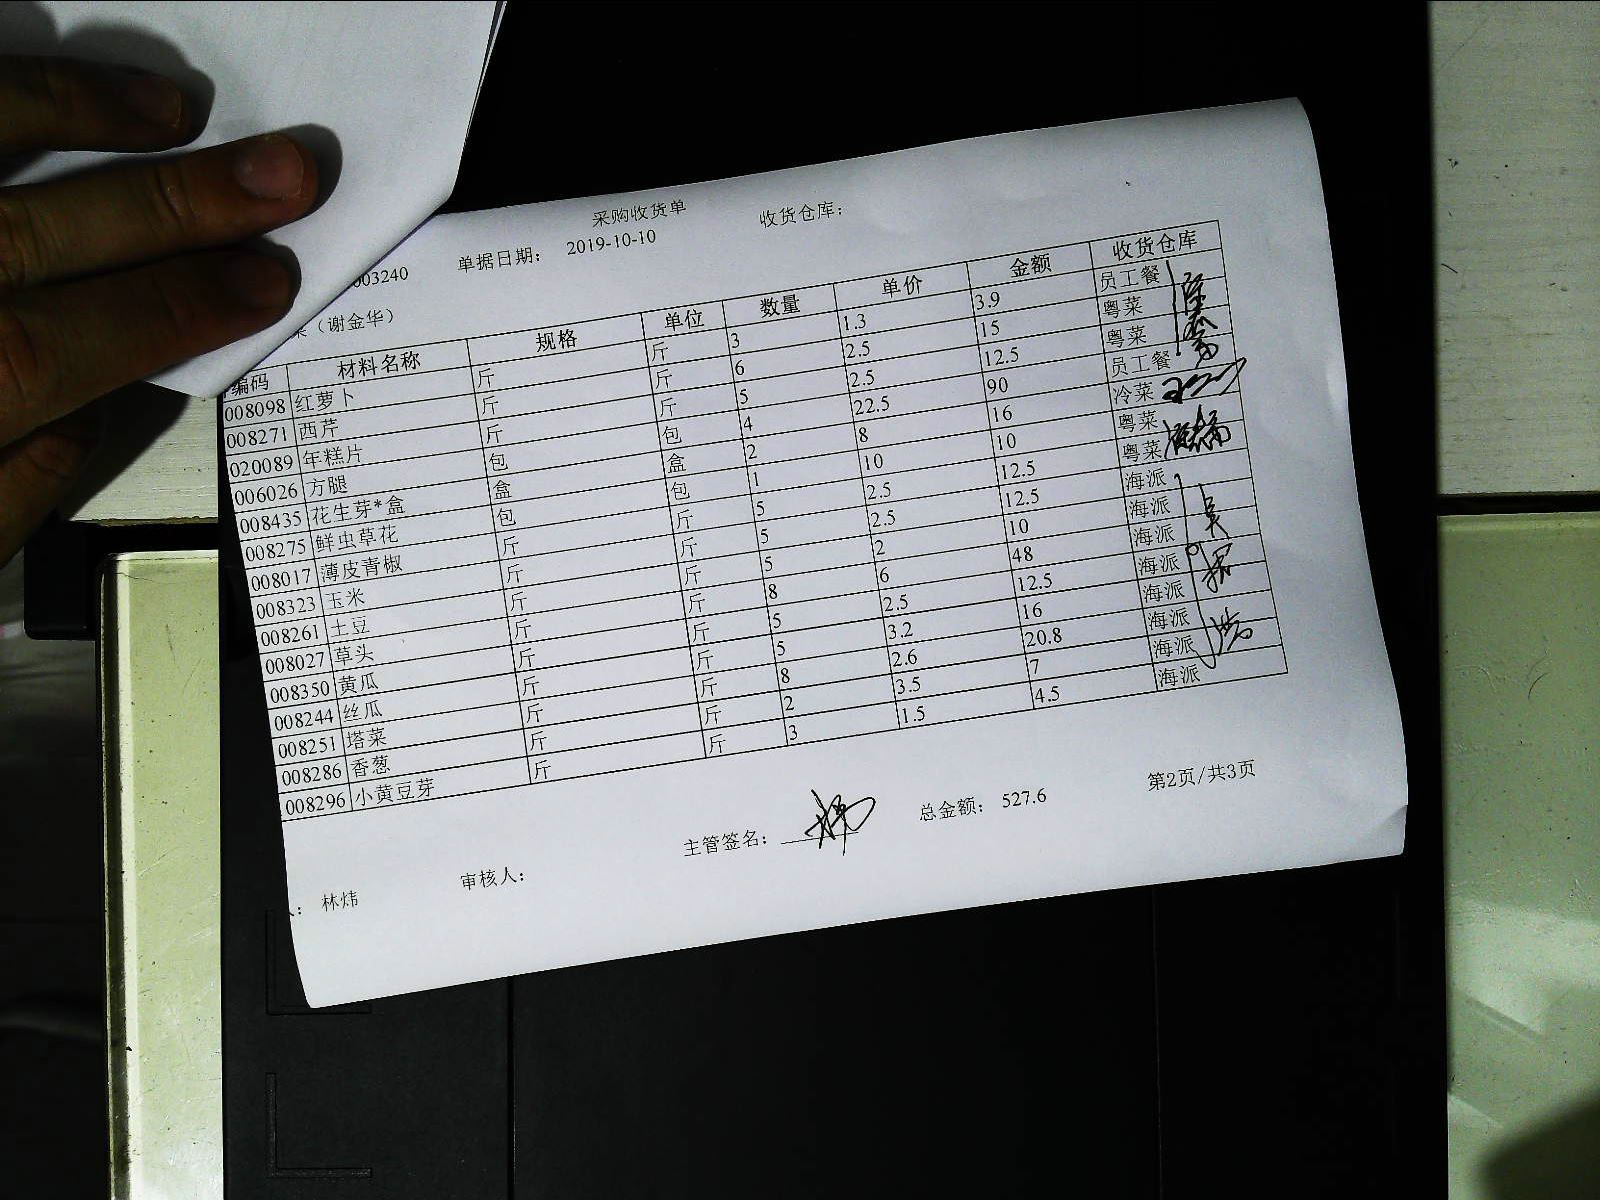 采购收货单
003240 单据日期： 2019-10-10 收货仓库：
（谢金华）
编码 材料名称 规格 单位 数量 单价 金额 收货仓库
008098 红萝卜 斤 斤 3 1.3 3.9 员工餐
008271 西芹 斤 斤 6 2.5 15 粤菜
020089 年糕片 斤 斤 5 2.5 12.5 粤菜
006026 方腿 包 包 4 22.5 90 员工餐
008435 花生芽*盒 盒 盒 2 8 16 冷菜
008275 鲜虫草花 包 包 1 10 10 粤菜
008017 薄皮青椒 斤 斤 5 2.5 12.5 粤菜
008323 玉米 斤 斤 5 2.5 12.5 海派
008261 土豆 斤 斤 5 2 10 海派
008027 草头 斤 斤 8 6 48 海派
008350 黄瓜 斤 斤 5 2.5 12.5 海派
008244 丝瓜 斤 斤 5 3.2 16 海派
008251 塔菜 斤 斤 8 2.6 20.8 海派
008286 香葱 斤 斤 2 3.5 7 海派
008296 小黄豆芽 斤 斤 3 1.5 4.5 海派
林炜 审核人： 主管签名： 总金额： 527.6 第2页/共3页